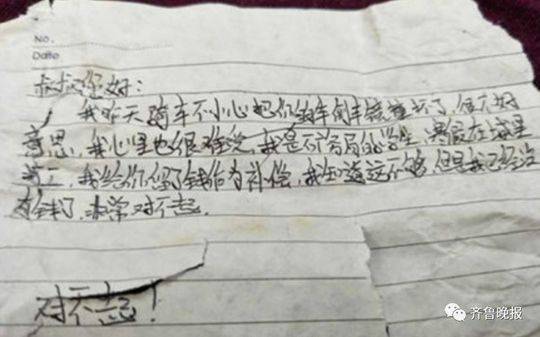 No.
Date
叔叔您好:
我昨天骑车不小心把你的车倒车镜撞坏了,很不好
意思,我心里也很难受,我是不 的学生,寒假在这里
打工,我给你 了钱作为补偿,我知道这不够,但是我已经没
有钱了,非常对不起.
对不起!
齐鲁晚报